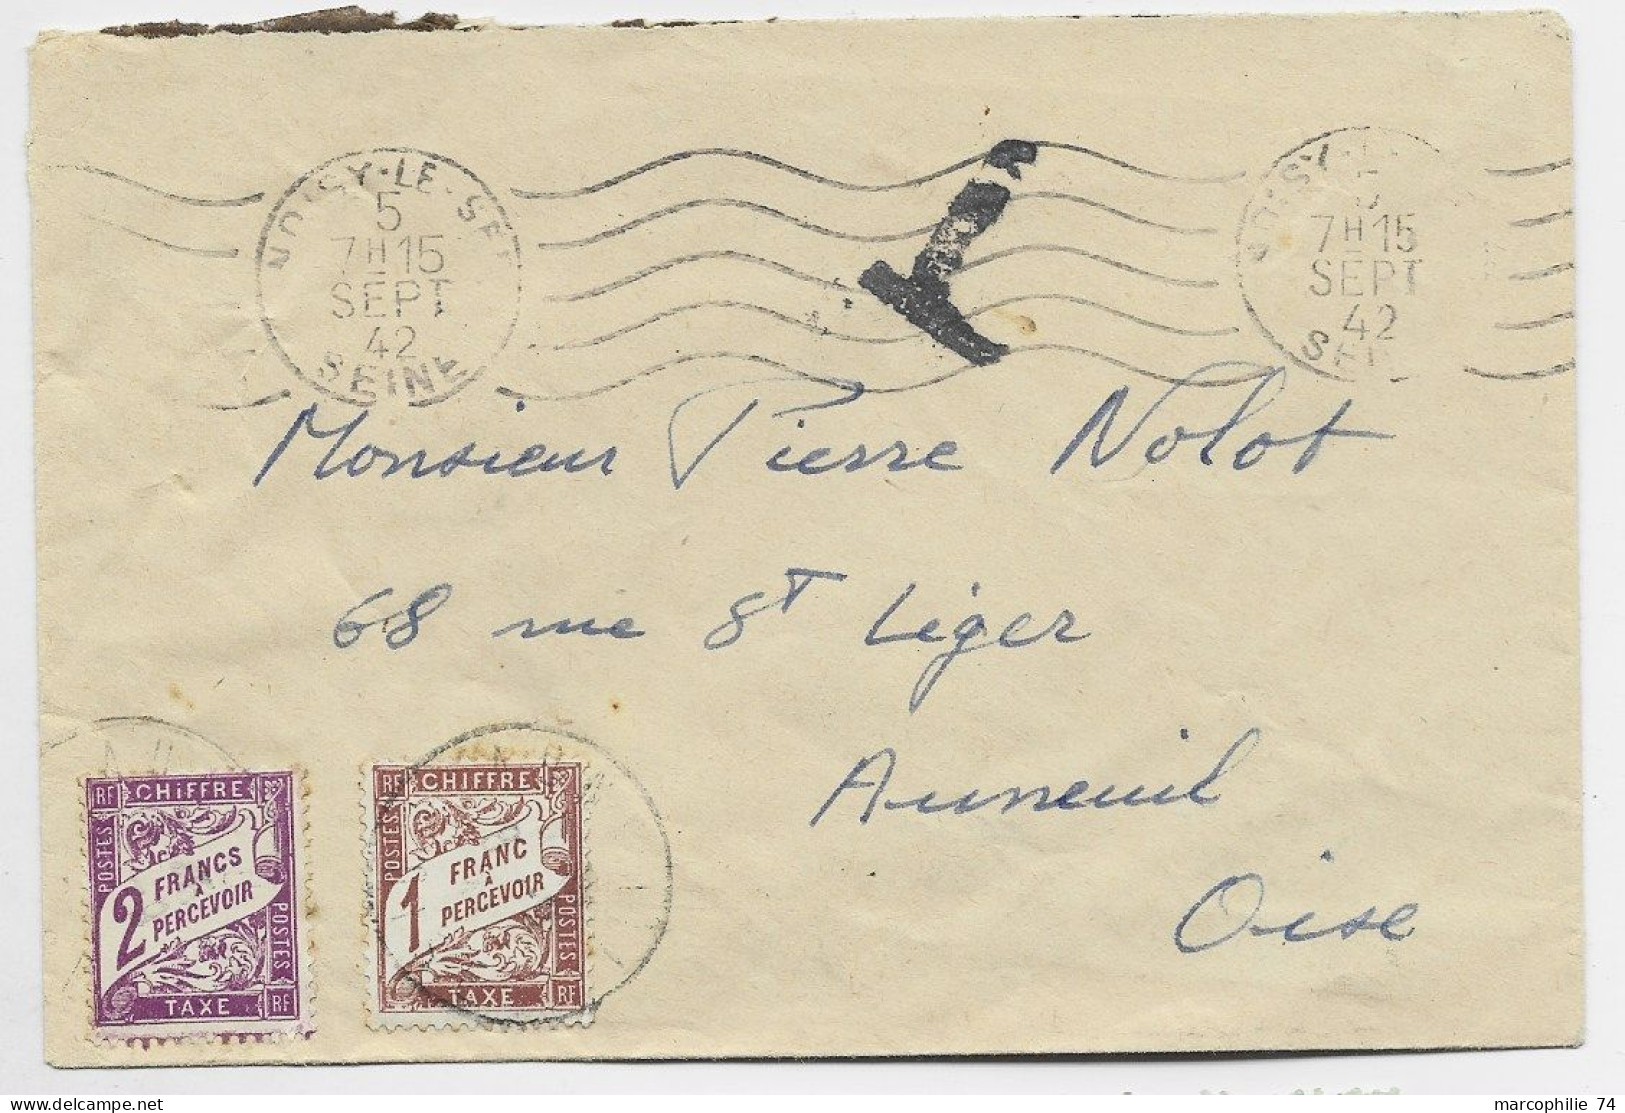 NOISY-LE-SEC
5
7H15
SEPT
42
SEINE
7H15
SEPT
42
T
Monsieur Pierre Nolot
68 rue St Léger
Auneuil
Oise
RF CHIFFRE
POSTES
2 FRANCS
A
PERCEVOIR
POSTES
TAXE RF
RF CHIFFRE
POSTES
1 FRANC
A
PERCEVOIR
POSTES
TAXE RF
marcophilie 74